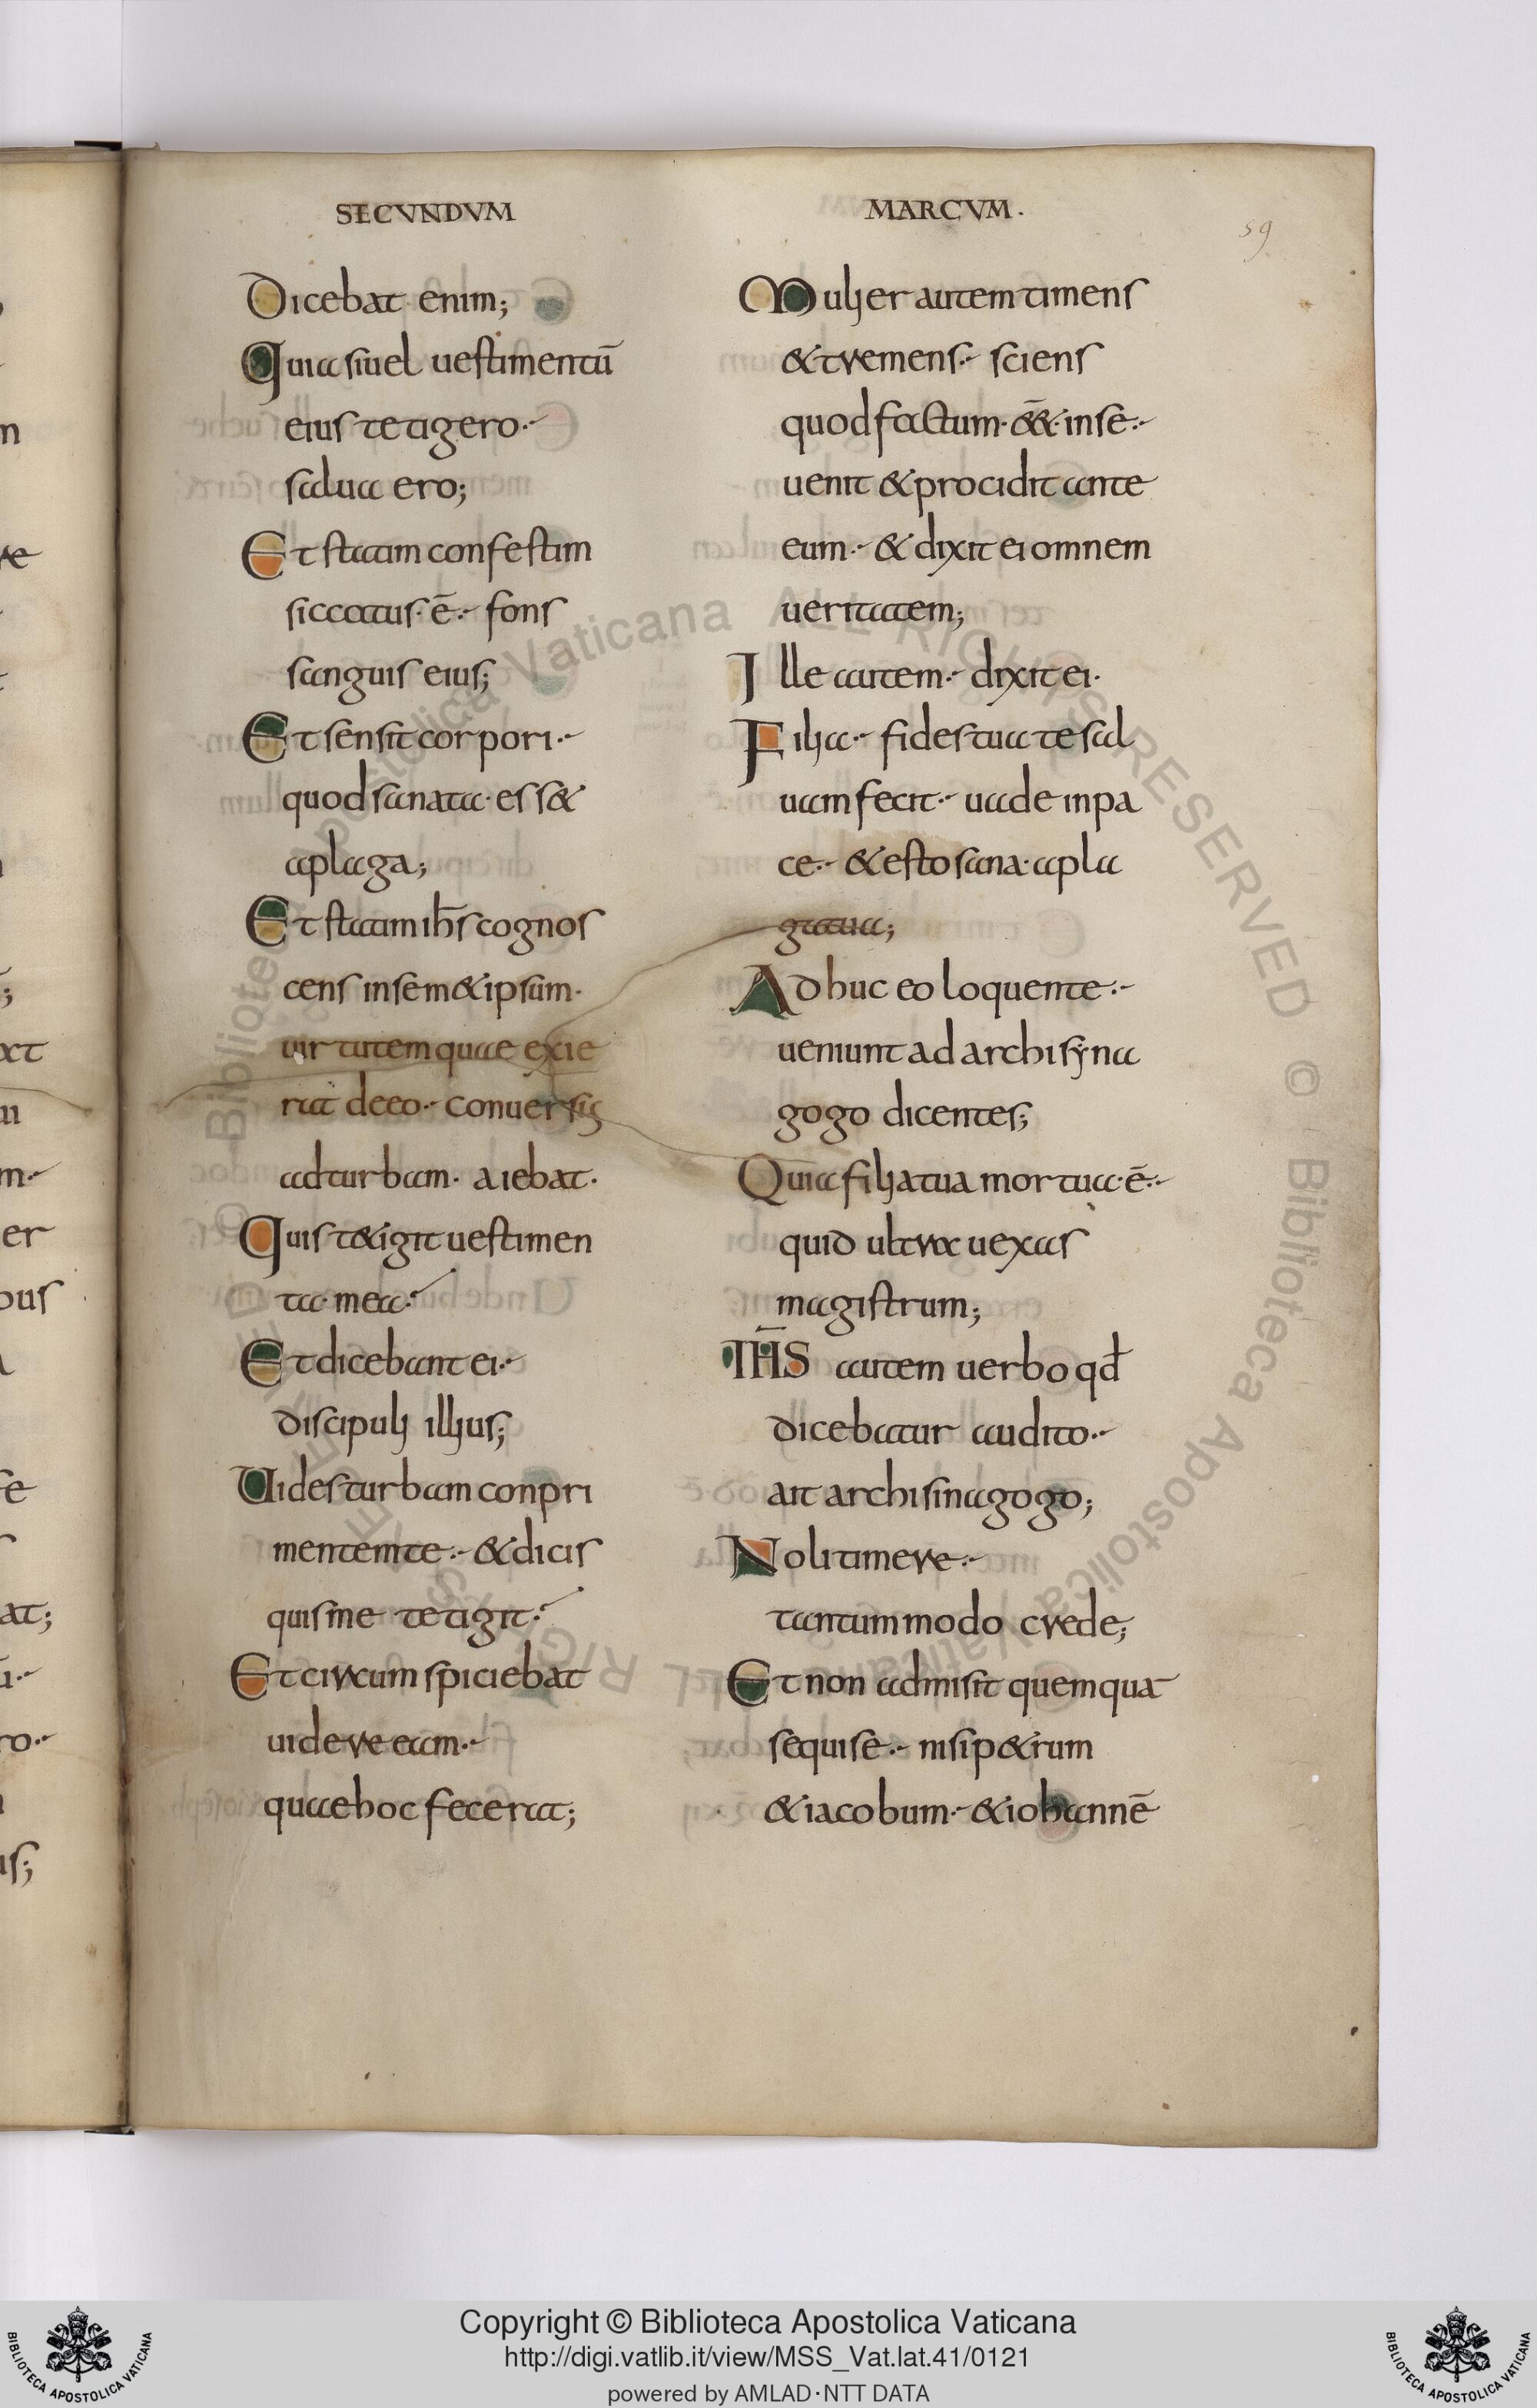 SECVNDVM
MARCVM.
59
Dicebat enim;
Quia si uel uestimentū
eius tetigero·
salua ero;
Et statim confestim
siccatus· ē· fons
sanguis eius;
Et sensit corpori·
quod sanata· ess&
a plaga;
Et statim ih̄s cognos
cens in sem&ipsum·
uirtutem quae exie
rat de eo· conuersus
ad turbam· aiebat·
Quis t&igit uestimen
ta· mea·
Et dicebant ei·
discipuli illius;
Uides turbam conpri
mentem te· & dicis
quis me tetigit·
Et circumspiciebat
uidere eam·
quae hoc fecerat;
Mulier autem timens
& tremens· sciens
quod factum· in se·
uenit & procidit ante
eum· & dixit ei omnem
ueritatem;
Ille autem· dixit ei·
Filia· fides tua te sal
uam fecit· uade in pa
ce· & esto sana· a pla
ga tua;
Adhuc eo loquente·
ueniunt ad archisyna
gogo dicentes;
Quia filia tua mortua· ē·
quid ultra uexas
magistrum;
IH̄S autem uerbo qđ
dicebatur audito·
ait archisinagogo;
Noli timere·
tantummodo crede;
Et non admisit quemquā
sequi se· nisi p&rum
& iacobum· & iohannē
Copyright © Biblioteca Apostolica Vaticana
http://digi.vatlib.it/view/MSS_Vat.lat.41/0121
powered by AMLAD·NTT DATA
BIBLIOTECA APOSTOLICA VATICANA
BIBLIOTECA APOSTOLICA VATICANA